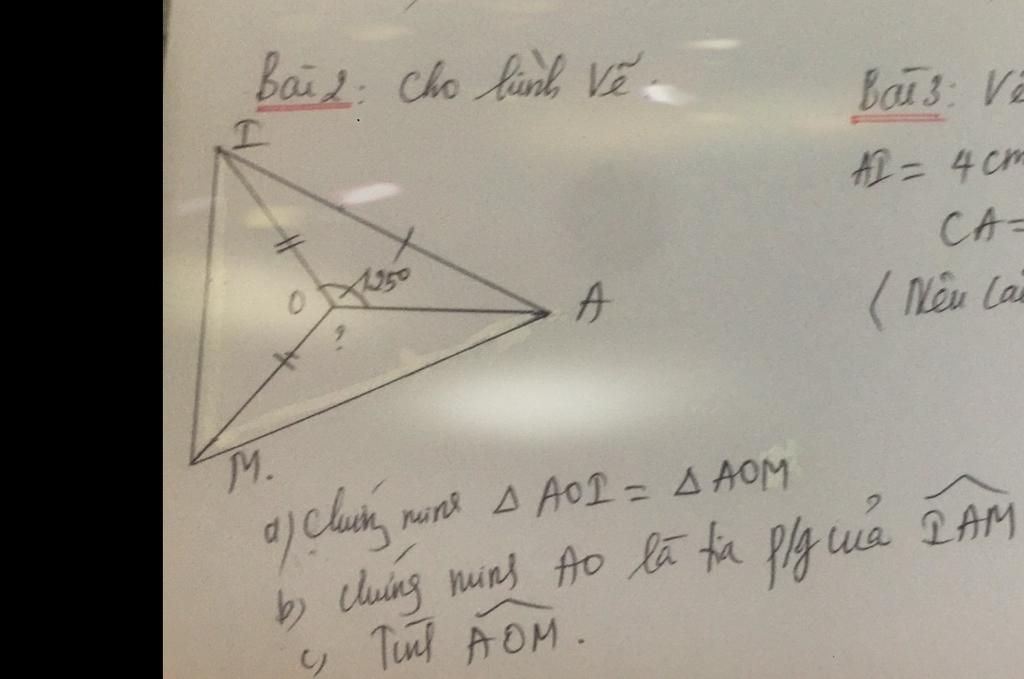 Bài 2: Cho hình vẽ:
I
O
1250
A
?
M.
a) Chứng minh Δ AOI = Δ AOM
b) Chứng minh AO là tia p/g của IAM
c) Tính AOM.
Bài 3: Vẽ
AI = 4 cm
CA =
( Nêu